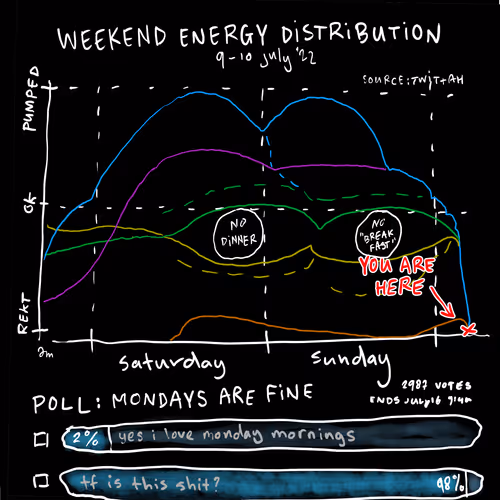 WEEKEND ENERGY DISTRIBUTION
9-10 july '22
PUMPED
OK
REKT
NO
DINNER
NO
"BREAK
FAST"
YOU ARE
HERE
saturday
sunday
POLL: MONDAYS ARE FINE
2987 VOTES
2% yes i love monday mornings
tf is this shit? 98%